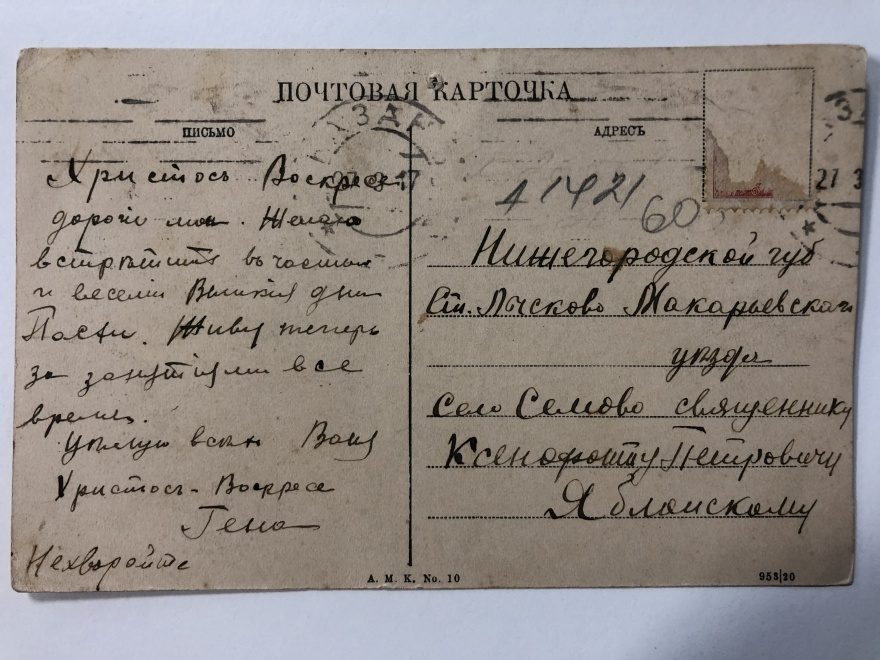 ПОЧТОВАЯ КАРТОЧКА
ПИСЬМО
АДРЕСЪ
Христосъ Воскресе
дороги мои. Желаю
встрѣтить въ
и весели Великия дни
Пасхи. Живу теперь
за занятиями все
время.
Цѣлую всѣхъ Васъ
Христосъ-Воскресе
Гена
Нехворайте
А 1421
60
27 3
Нижегородской губ
Ст. Лысково Макарьевскаго
уѣзда
Село Семово священнику
Ксенофонту Петровичу
Яблонскому
А. М. К. No. 10
953|20